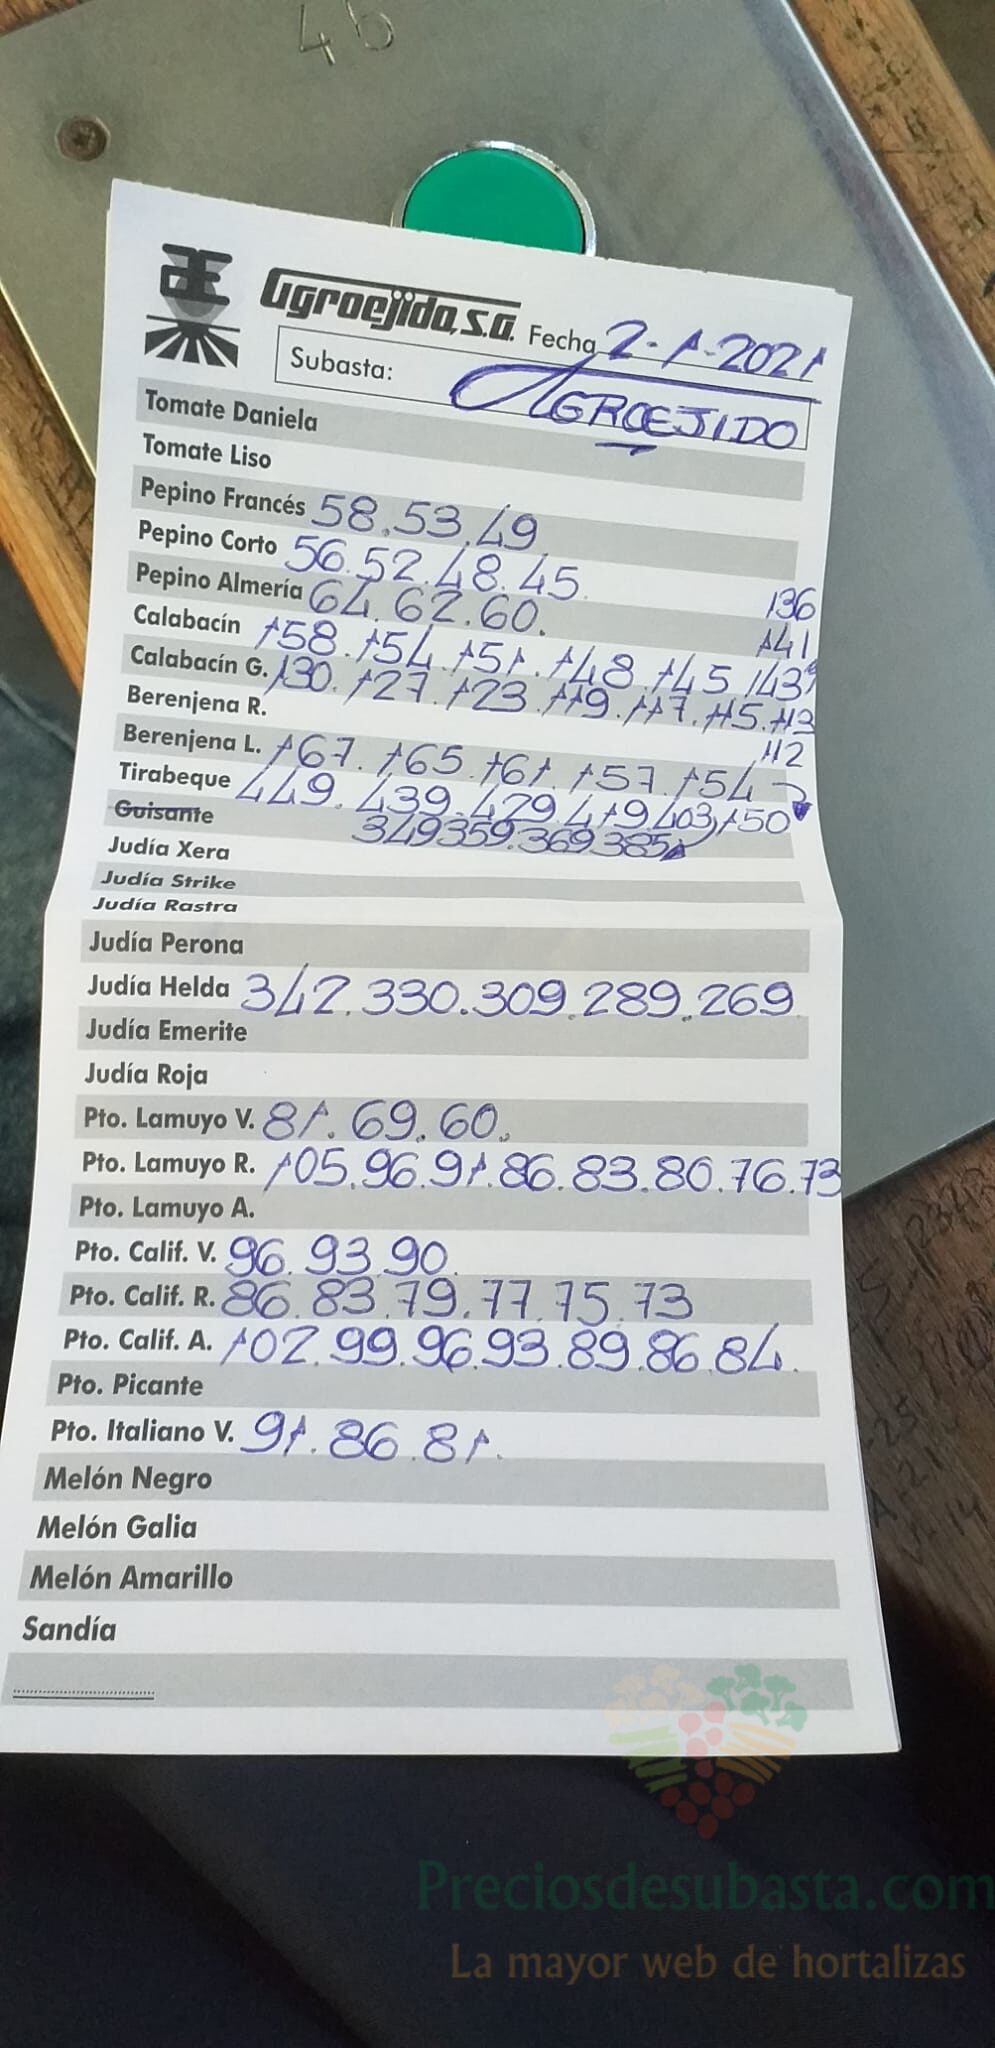 46
Æ
Agroejido, S.A. Fecha 2-1-2021
Subasta: AGROEJIDO
Tomate Daniela
Tomate Liso
Pepino Francés 58.53.49
Pepino Corto 56.52.48.45.
Pepino Almería 64.62.60. 136
141
Calabacín 158.154.151.148.145.143
Calabacín G. 130.127.123.119.117.115.113
112
Berenjena R.
Berenjena L. 167.165.161.157.154
150
Tirabeque 449.439.429.419.403
349 359.369.385
Guisante
Judía Xera
Judía Strike
Judía Rastra
Judía Perona
Judía Helda 342.330.309.289.269
Judía Emerite
Judía Roja
Pto. Lamuyo V. 81.69.60.
Pto. Lamuyo R. 105.96.91.86.83.80.76.73
Pto. Lamuyo A.
Pto. Calif. V. 96.93.90
Pto. Calif. R. 86.83.79.77.75.73
Pto. Calif. A. 102.99.96.93.89.86.84.
Pto. Picante
Pto. Italiano V. 91.86.81.
Melón Negro
Melón Galia
Melón Amarillo
Sandía
Preciosdesubasta.com
La mayor web de hortalizas